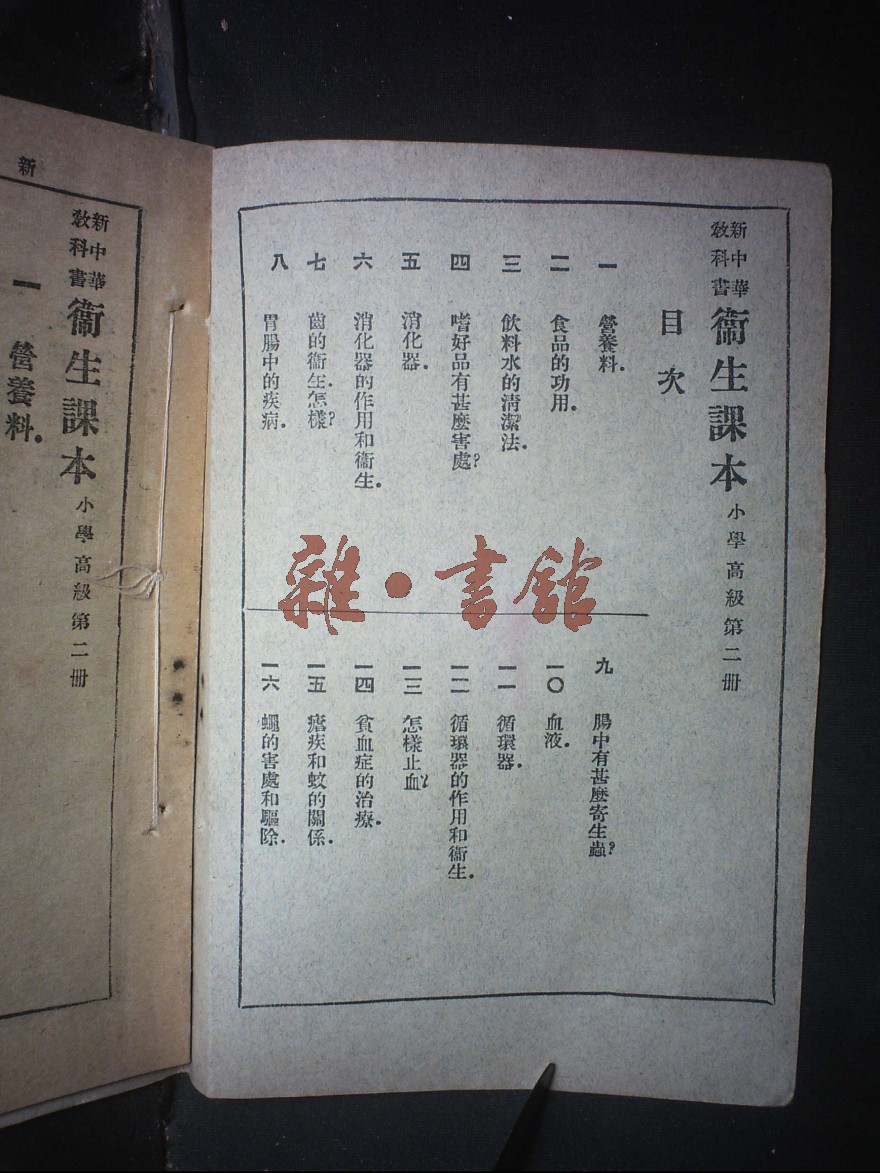 新中華
教科書
衞生課本
小學高級第二冊
目次
一 營養料.
二 食品的功用.
三 飲料水的清潔法.
四 嗜好品有甚麼害處?
五 消化器.
六 消化器的作用和衞生.
七 齒的衞生.怎樣?
八 胃腸中的疾病.
九 腸中有甚麼寄生蟲?
一〇 血液.
一一 循環器.
一二 循環器的作用和衞生.
一三 怎樣止血?
一四 貧血症的治療.
一五 瘧疾和蚊的關係.
一六 蠅的害處和驅除.
雜·書館
新中華
教科書
衞生課本
小學高級第二冊
一 營養料.
新